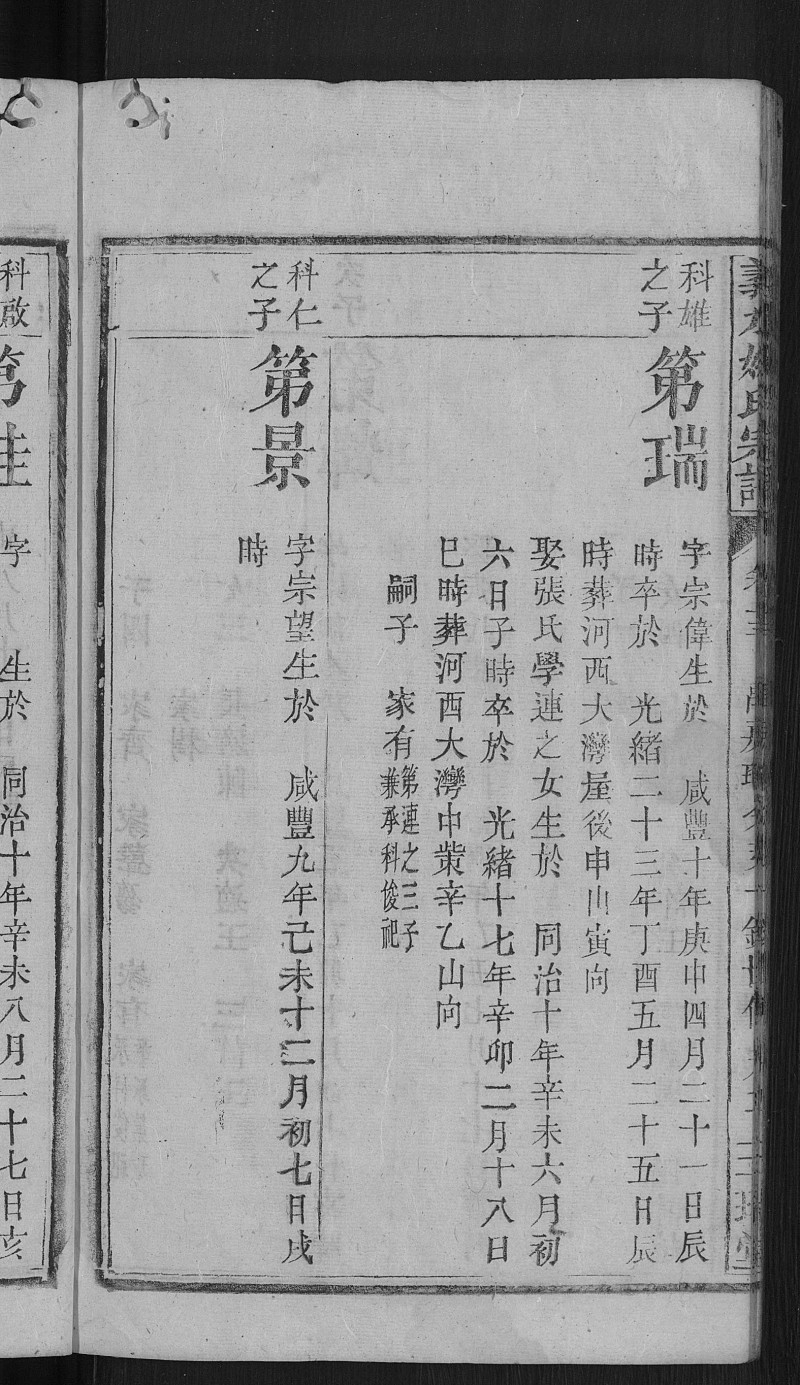 科雄
之子
第瑞
字宗偉生於　咸豐十年庚申四月二十一日辰
時卒於　光緒二十三年丁酉五月二十五日辰
時葬河西大灣屋後申山寅向
娶張氏學連之女生於　同治十年辛未六月初
六日子時卒於　光緒十七年辛卯二月十八日
巳時葬河西大灣中業辛乙山向
嗣子　家有
第連之三子
兼承科俊祀
科仁
之子
第景
字宗望生於　咸豐九年己未十二月初七日戌
時
科啟
第桂
字　　生於　同治十年辛未八月二十七日亥